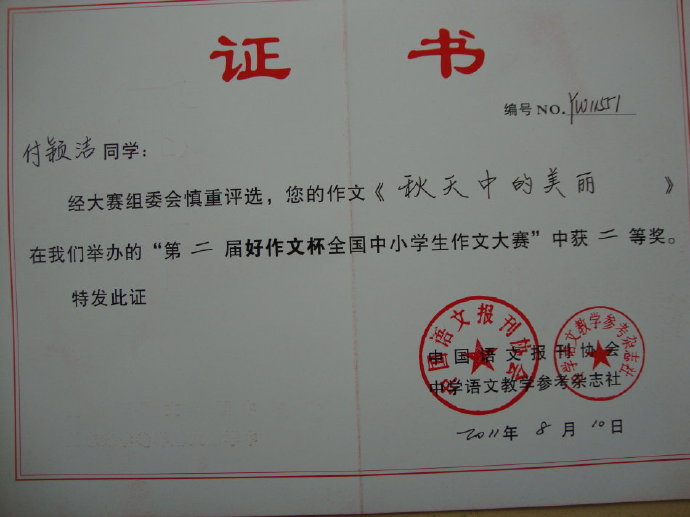 证书
编号 NO. YW011551
付颖洁同学：
经大赛组委会慎重评选，您的作文《秋天中的美丽》
在我们举办的“第二届好作文杯全国中小学生作文大赛”中获二等奖。
特发此证
中国语文报刊协会
中学语文教学参考杂志社
中国语文报刊协会
中学语文教学参考杂志社
2011年8月10日